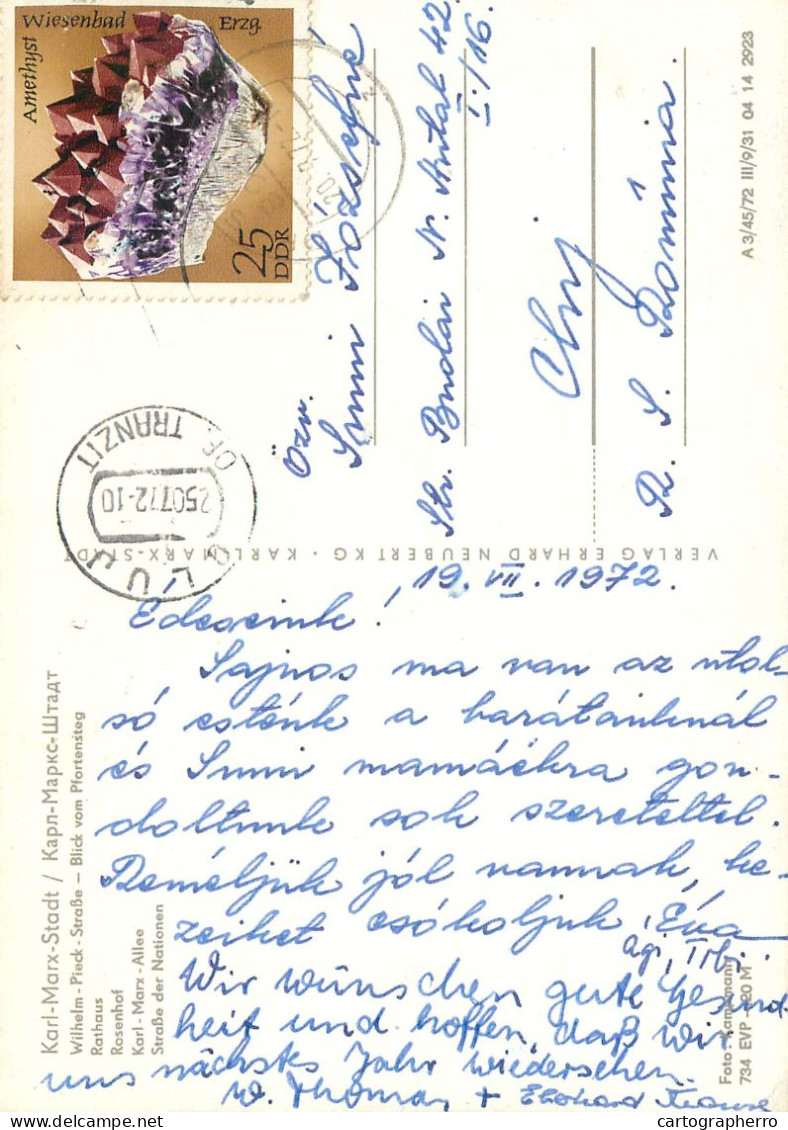 Amethyst
Wiesenbad
Erzg.
25
DDR
Özv.
Imi Józsefné
Str. Budai N. Antal 42
I./16.
Cluj
R. S. România.
A 3/45/72 III/9/31 04 14 2923
CLUJ
OF. TRANZIT
250772-10
VERLAG ERHARD NEUBERT KG · KARL-MARX-STADT
19. VII. 1972.
Édeseink!
Sajnos ma van az utol-
só esténk a barátainknál
és Immi mamáékra gon-
doltunk sok szeretettel.
Reméljük jól vannak, ke-
zeiket csókoljuk: Éva
Ági,
Wir wünschen gute Gesund-
heit und hoffen, daß wir
uns nächstes Jahr wiedersehen.
W. Thomas + Ekkehard Krause
Karl-Marx-Stadt / Карл-Маркс-Штадт
Wilhelm-Pieck-Straße – Blick vom Pfortensteg
Rathaus
Rosenhof
Karl-Marx-Allee
Straße der Nationen
Foto:
734 EVP M
cartographerro